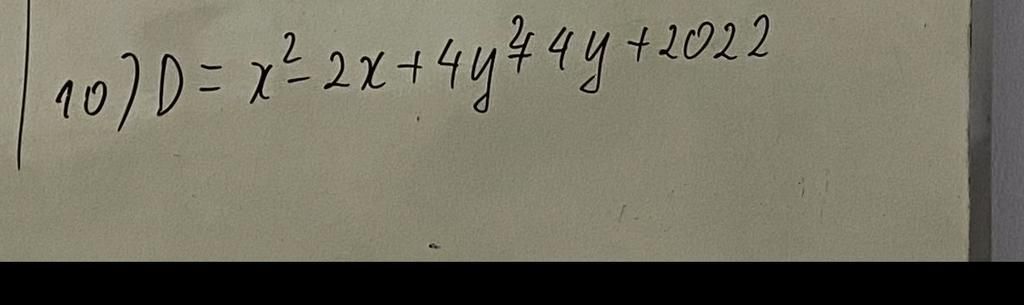 10) D = x² - 2x + 4y² + 4y + 2022